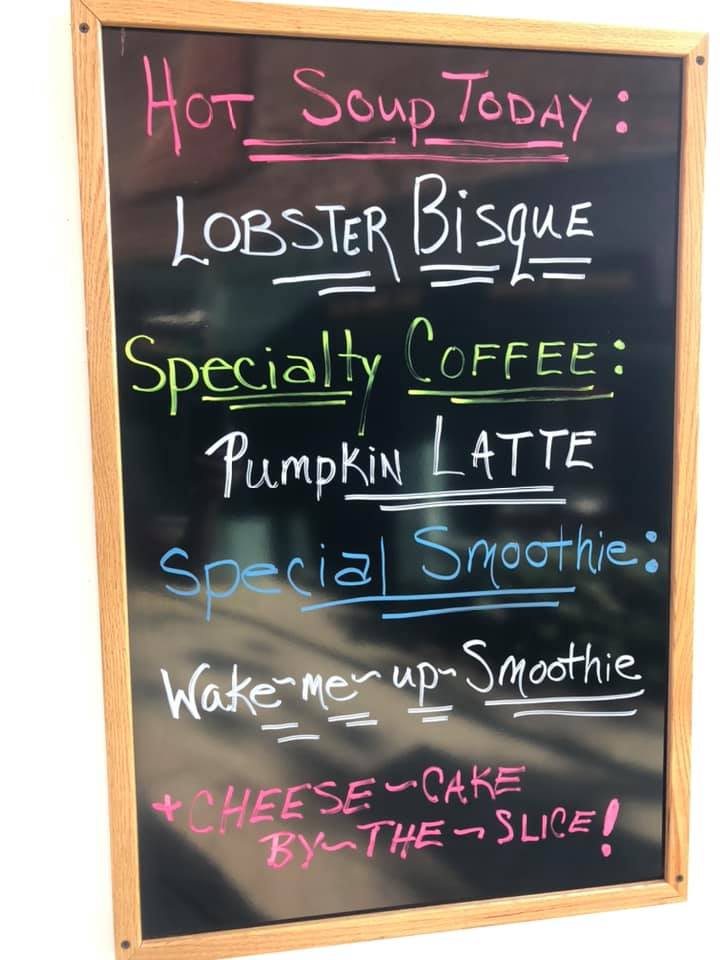 HOT SOUP TODAY:
LOBSTER BISQUE
Specialty COFFEE:
PUMPKIN LATTE
Special Smoothie:
Wake~me~up~Smoothie
+CHEESE~CAKE
BY~THE~SLICE!